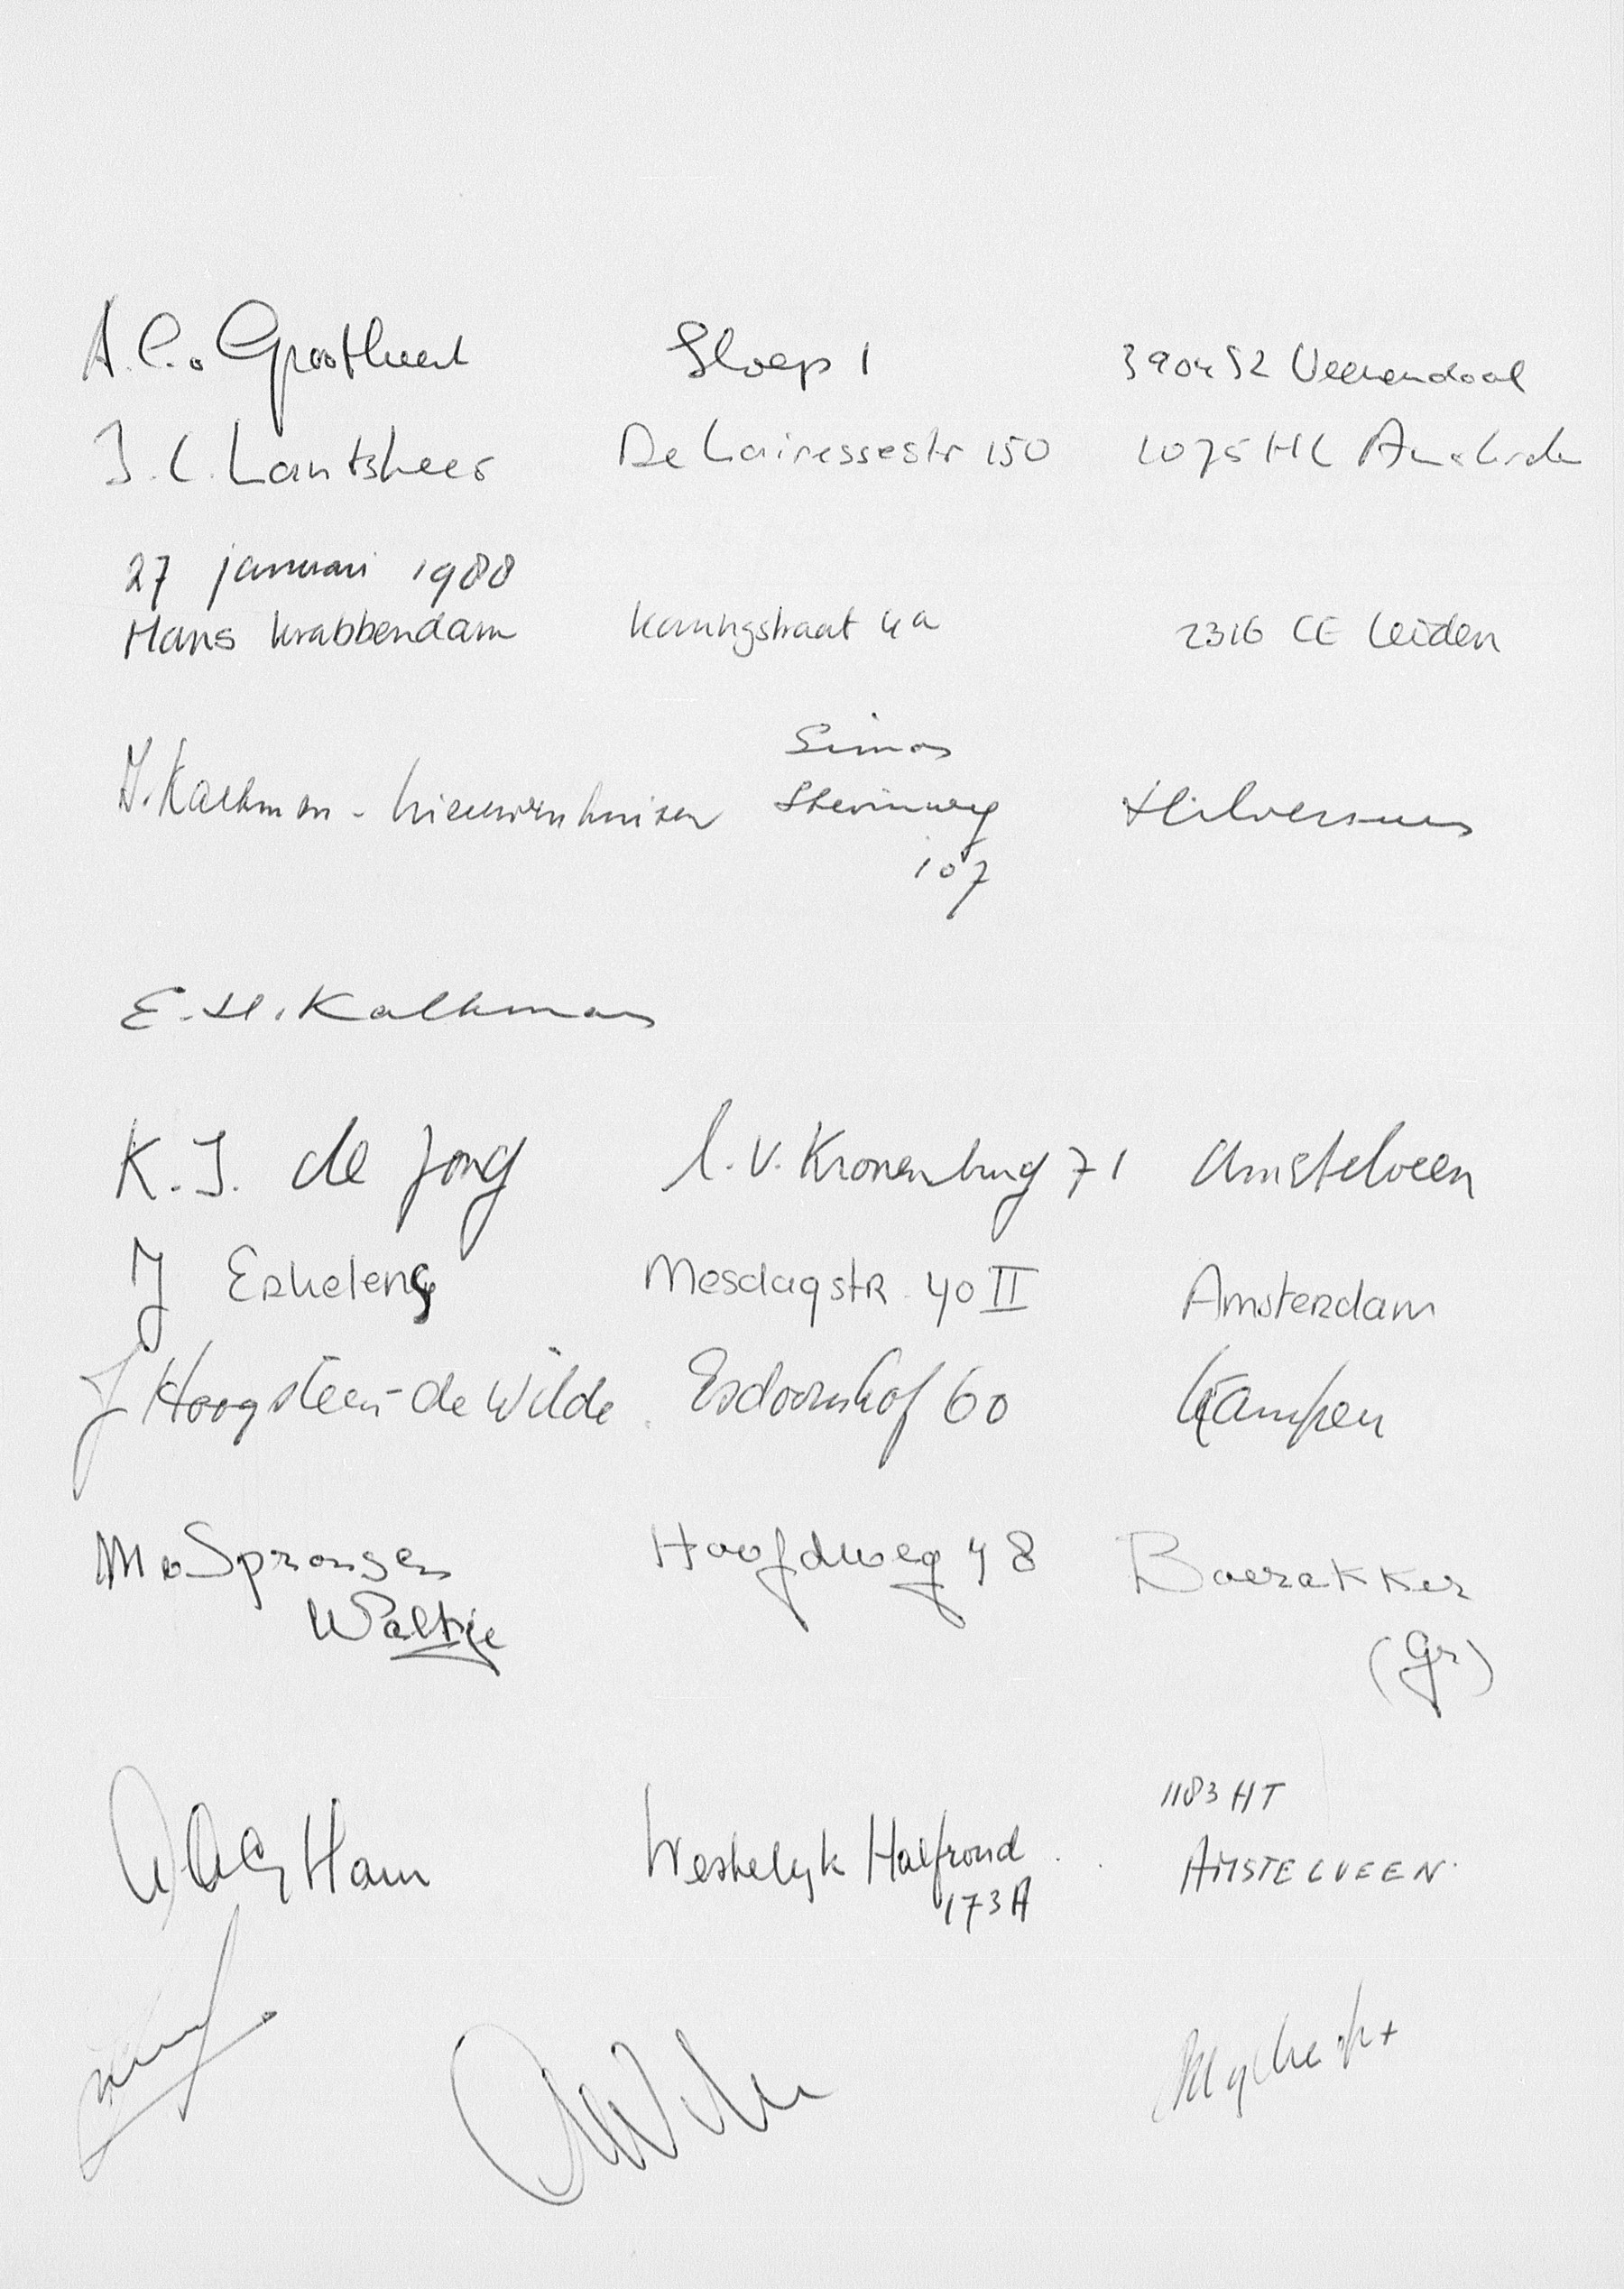 A.C. Grootheest Sloep 1 3904 SZ Veenendaal
J.C. Lantsheer De Lairessestr 150 1075 HL
27 januari 1988
Hans Krabbendam Koningstraat 4a 2316 CE Leiden
Simon
Kalkman - Nieuwenhuizen Stevinweg Hilversum
107
E.H. Kalkman
K.J. de Jong L.v. Kronenburg 71 Amstelveen
J Erkelens Mesdagstr. 40 II Amsterdam
J Hoogsteen-de Wilde Esdoornhof 60 Kampen
M v Spronsen Hoofdweg 48 Boerakker
Waltje
(Gr)
1183 HT
Ham Westelijk Halfrond AMSTELVEEN
173A